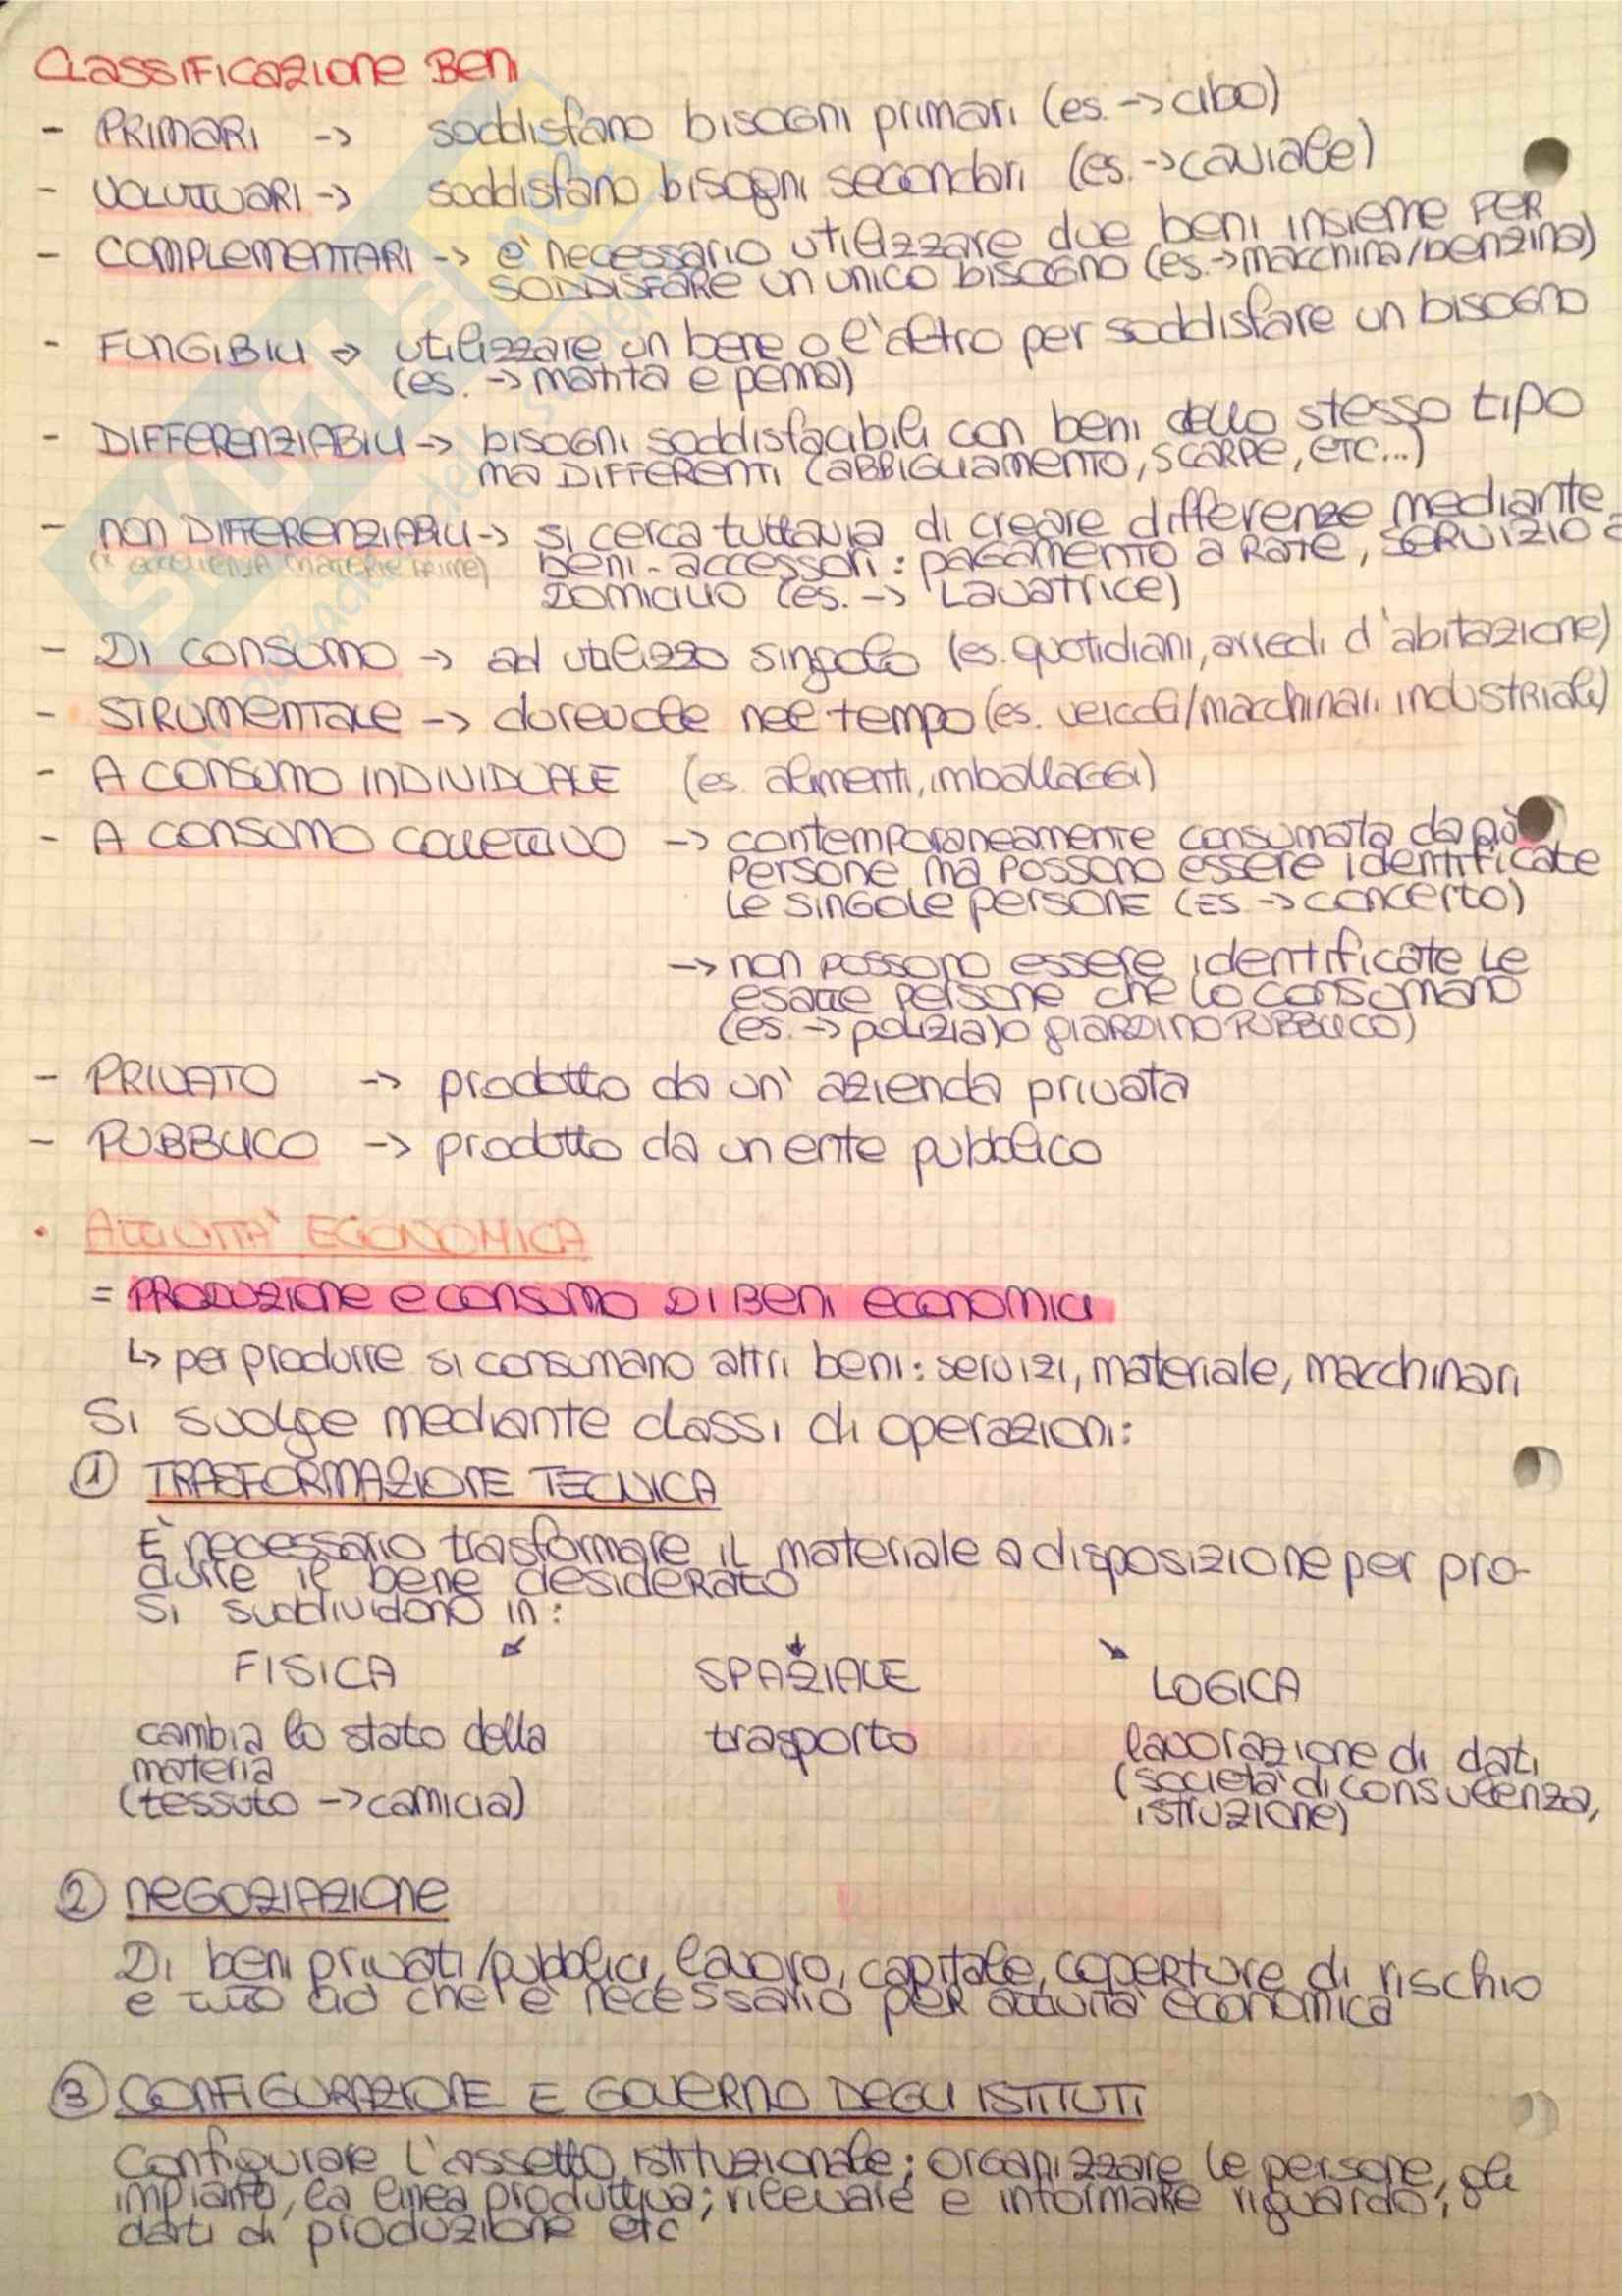 CLASSIFICAZIONE BENI
- PRIMARI -> soddisfano bisogni primari (es. -> cibo)
- VOLUTTUARI -> soddisfano bisogni secondari (es. -> caviale)
- COMPLEMENTARI -> è necessario utilizzare due beni insieme PER
SODDISFARE un unico bisogno (es. -> macchina/benzina)
- FUNGIBILI -> utilizzare un bene o l'altro per soddisfare un bisogno
(es. -> matita e penna)
- DIFFERENZIABILI -> bisogni soddisfacibili con beni dello stesso tipo
ma DIFFERENTI (ABBIGLIAMENTO, SCARPE, ETC...)
- NON DIFFERENZIABILI -> si cerca tuttavia di creare differenze mediante
(x eccellenza materie prime) beni-accessori: pagamento a RATE, SERVIZIO a
DOMICILIO (es. -> LAVATRICE)
- DI CONSUMO -> ad utilizzo singolo (es. quotidiani, arredi d'abitazione)
- STRUMENTALE -> durevole nel tempo (es. veicoli/macchinari industriali)
- A CONSUMO INDIVIDUALE (es. alimenti, imballaggi)
- A CONSUMO COLLETTIVO -> contemporaneamente consumata da più
persone ma possono essere identificate
le singole persone (ES -> concerto)
-> non possono essere identificate le
esatte persone che lo consumano
(es. -> polizia) o GIARDINO PUBBLICO)
- PRIVATO -> prodotto da un' azienda privata
- PUBBLICO -> prodotto da un ente pubblico
• ATTIVITA' ECONOMICA
= PRODUZIONE e consumo DI BENI economici
↳ per produrre si consumano altri beni: servizi, materiale, macchinari
Si svolge mediante classi di operazioni:
① TRASFORMAZIONE TECNICA
È necessario trasformare il materiale a disposizione per pro-
durre il bene desiderato
Si suddividono in:
FISICA SPAZIALE LOGICA
cambia lo stato della trasporto lavorazione di dati
materia (società di consulenza,
(tessuto -> camicia) istruzione)
② NEGOZIAZIONE
Di beni privati/pubblici, lavoro, capitale, coperture di rischio
e tutto ciò che è necessario per attività economica
③ CONFIGURAZIONE E GOVERNO DEGLI ISTITUTI
Configurare l'assetto istituzionale; organizzare le persone, gli
impianti, la linea produttiva; rilevare e informare riguardo i
dati di produzione etc